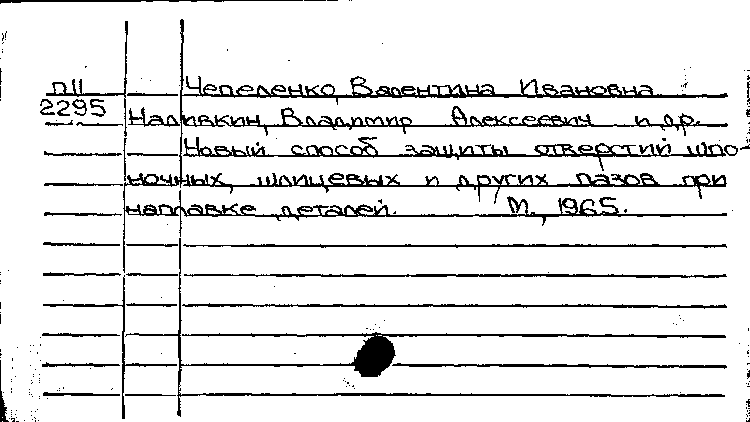 П11 Чепеленко, Валентина Ивановна
2295 Наливкин, Владимир Алексеевич и др.
Новый способ защиты отверстий шпо-
ночных, шлицевых и других пазов при
наплавке деталей. М., 1965.